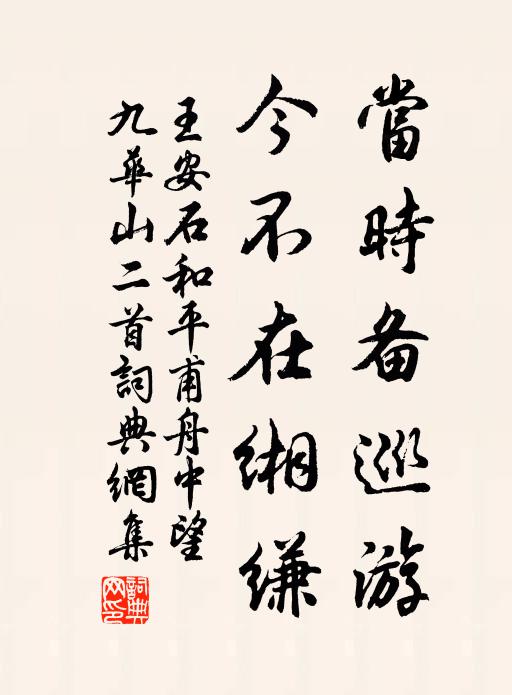 當時备巡游
今不在缃缣
王安石和平甫舟中望
九華山二首詞典網集
詞典网印